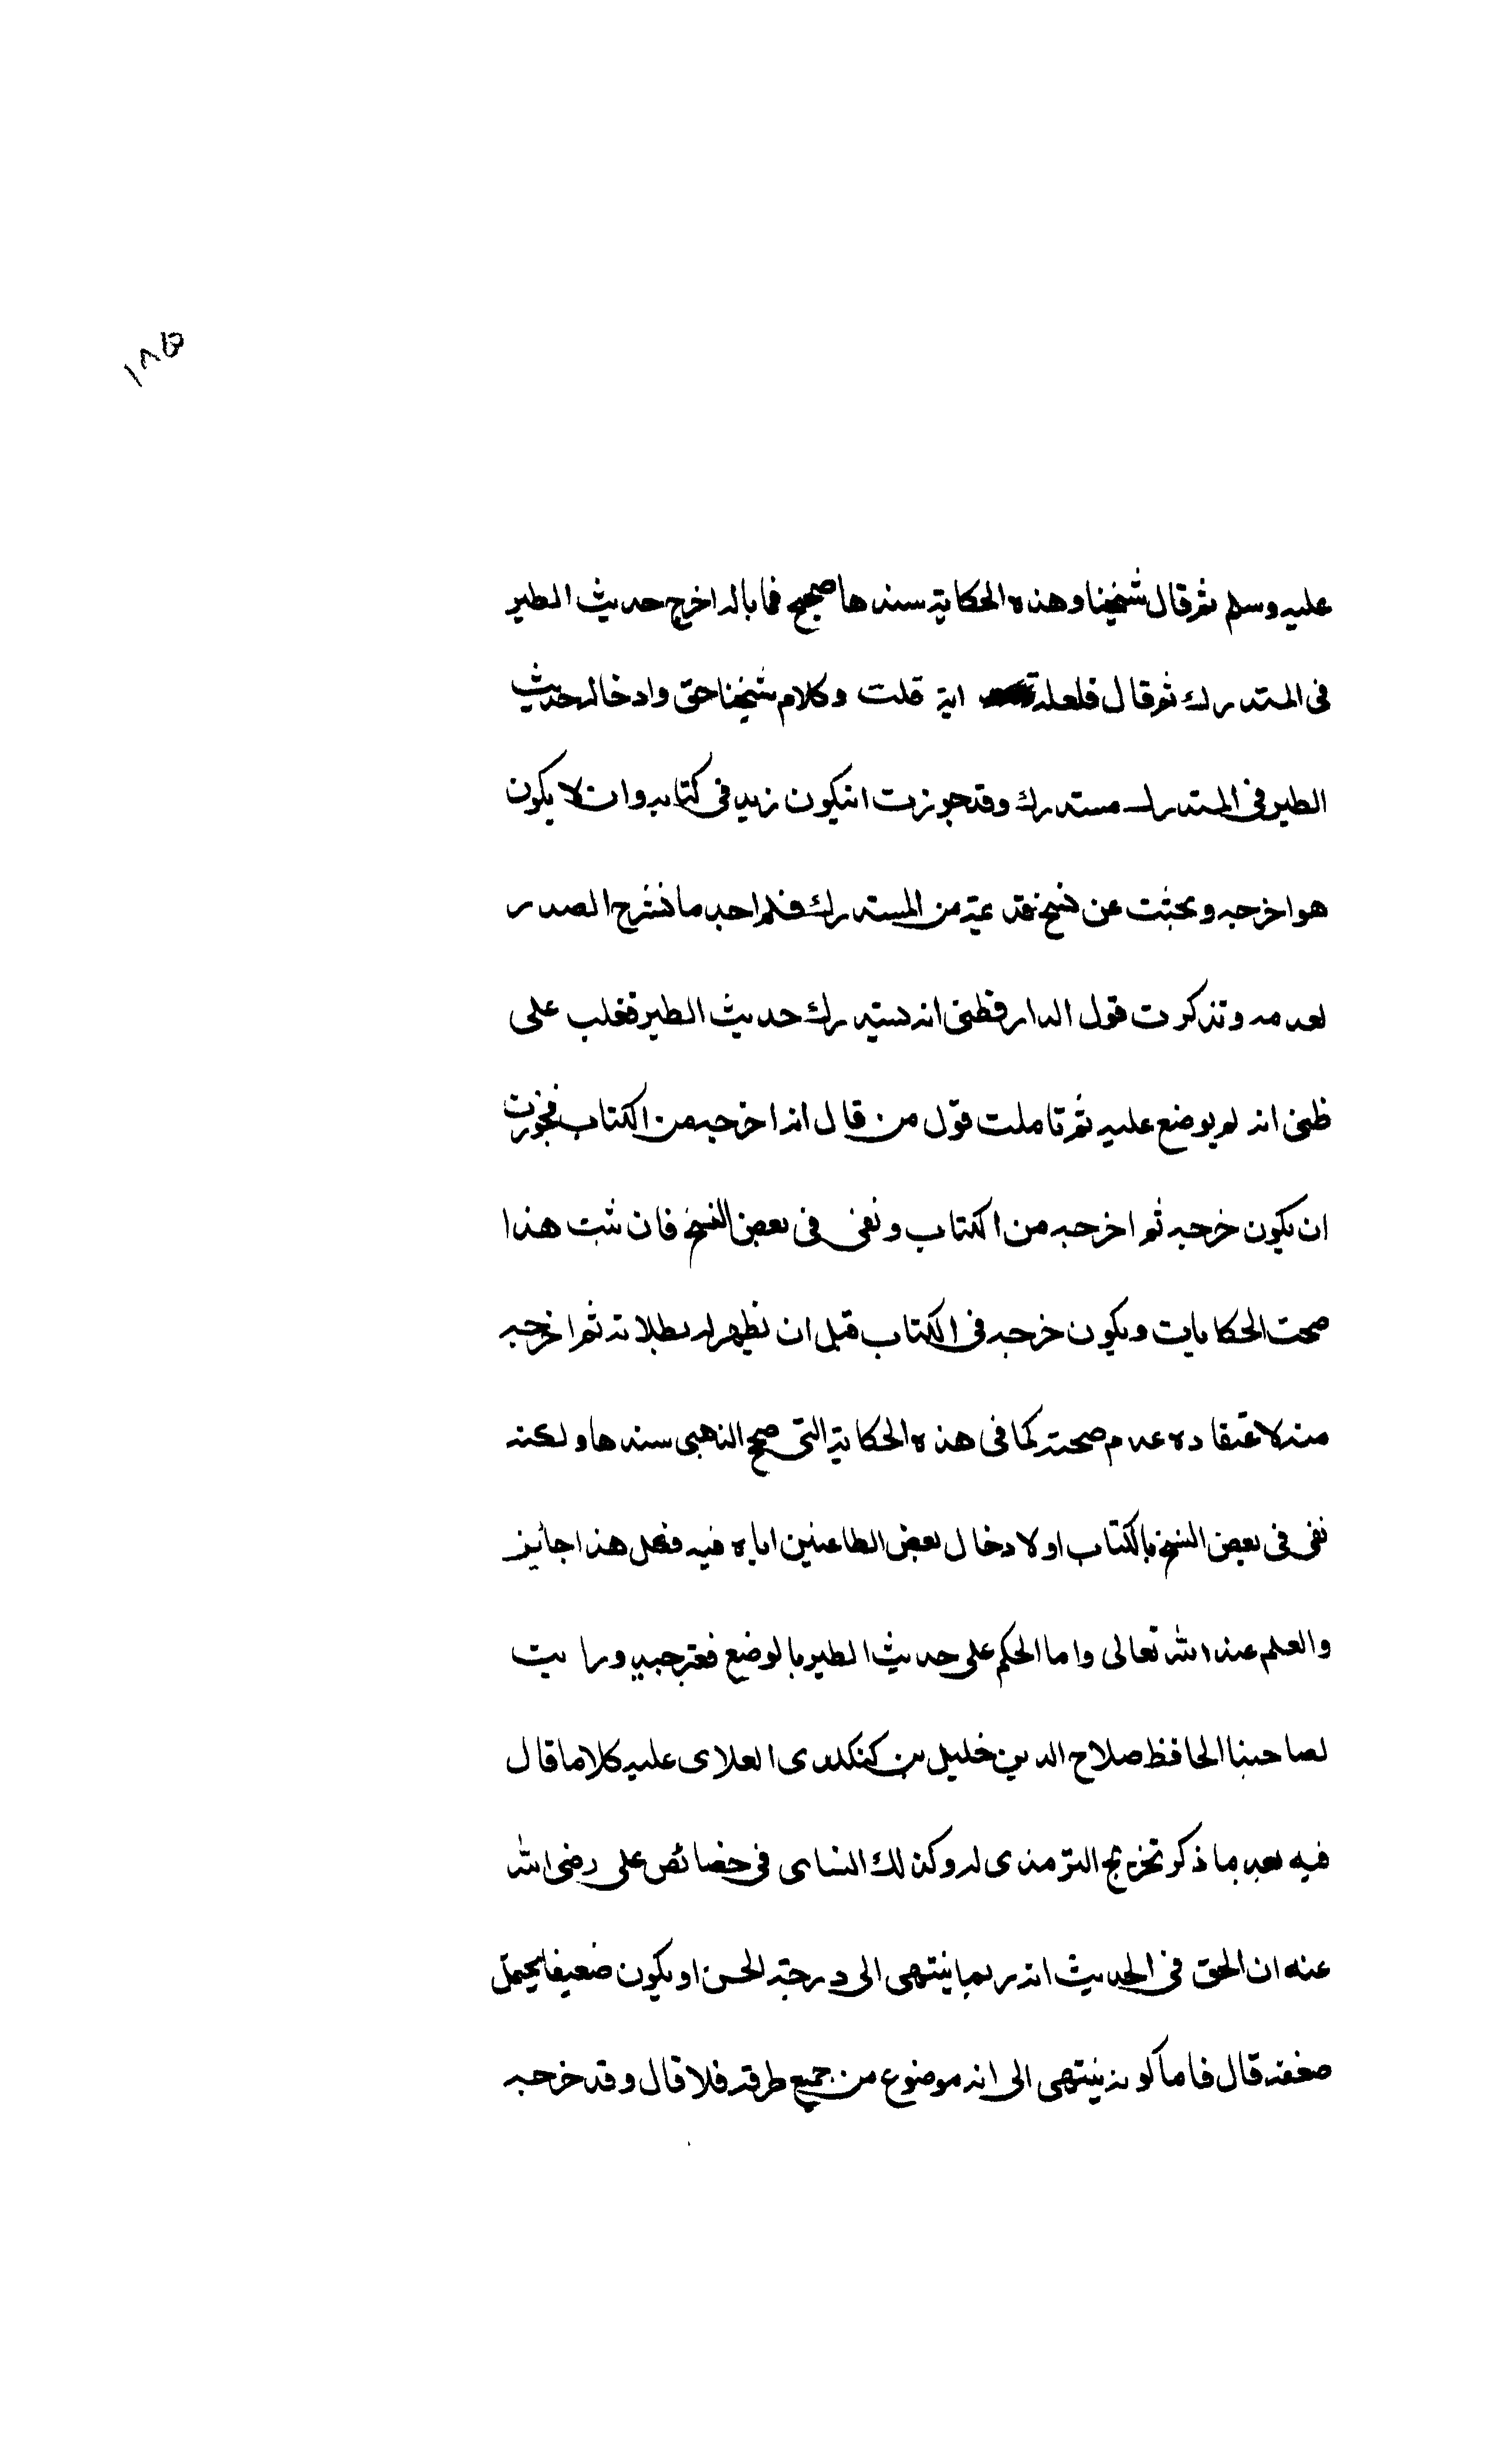 ١٨٥
عليه وسلم ثم قال شيخنا وهذه الحكاية سندها صحيح فما باله اخرج حديث الطير
فى المستدرك ثم قال فلعله ايه قلت وكلام شيخنا حق وادخاله حديث
الطير فى المستدرك مستدرك وقد جوزت ان يكون زيد فى كتابه وان لا يكون
هو اخرجه وبحثت عن نسخ قديمة من المستدرك فلم اجد ما ينشرح الصدر
لعدمه وتذكرت قول الدارقطنى انه يستدرك حديث الطير فغلب على
ظنى انه لم يوضع عليه ثم تاملت قول من قال انه اخرجه من الكتاب فجوزت
ان يكون خرجه ثم اخرجه من الكتاب ونفى فى بعض النسخ فان ثبت هذا
صحت الحكايات ويكون خرجه فى الكتاب قبل ان يظهر له بطلانه ثم اخرجه
منه لاعتقاده عدم صحته كما فى هذه الحكاية التى صحح الذهبى سندها ولكنه
نفى فى بعض النسخ بالكتاب او لادخال بعض الطاعنين اياه فيه فكل هذا جائز
والعلم عند الله تعالى واما الحكم على حديث الطير بالوضع فغير جيد ورايت
لصاحبنا الحافظ صلاح الدين خليل بن كنكلدى العلاى عليه كلاما قال
فيه بعد ما ذكر تخريج الترمذى له وكذلك النساى فى خصائص على رضى الله
عنه ان الحق فى الحديث انه ربما ينتهى الى درجة الحسن او يكون ضعيفا يحتمل
ضعفه قال فاما كونه ينتهى الى انه موضوع من جميع طرقه فلا قال وقد خرجه